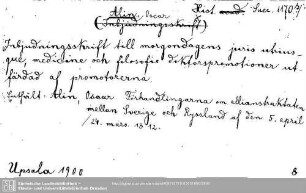 Alin, Oscar
Hist. Suec. 1170
(Inbjudningsskrift)
Inbjudningsskrift till morgondagens juris utrius-
que, medicine och filosofie doktorspromotioner ut-
färdad af promotorerna.
Enthält: Alin, Oscar. Förhandlingarna om allianstraktaten
mellan Sverige och Ryssland af den 5. april
/24. mars. 1812.
Upsala 1900
8
Sächsische Landesbibliothek -
Staats- und Universitätsbibliothek Dresden